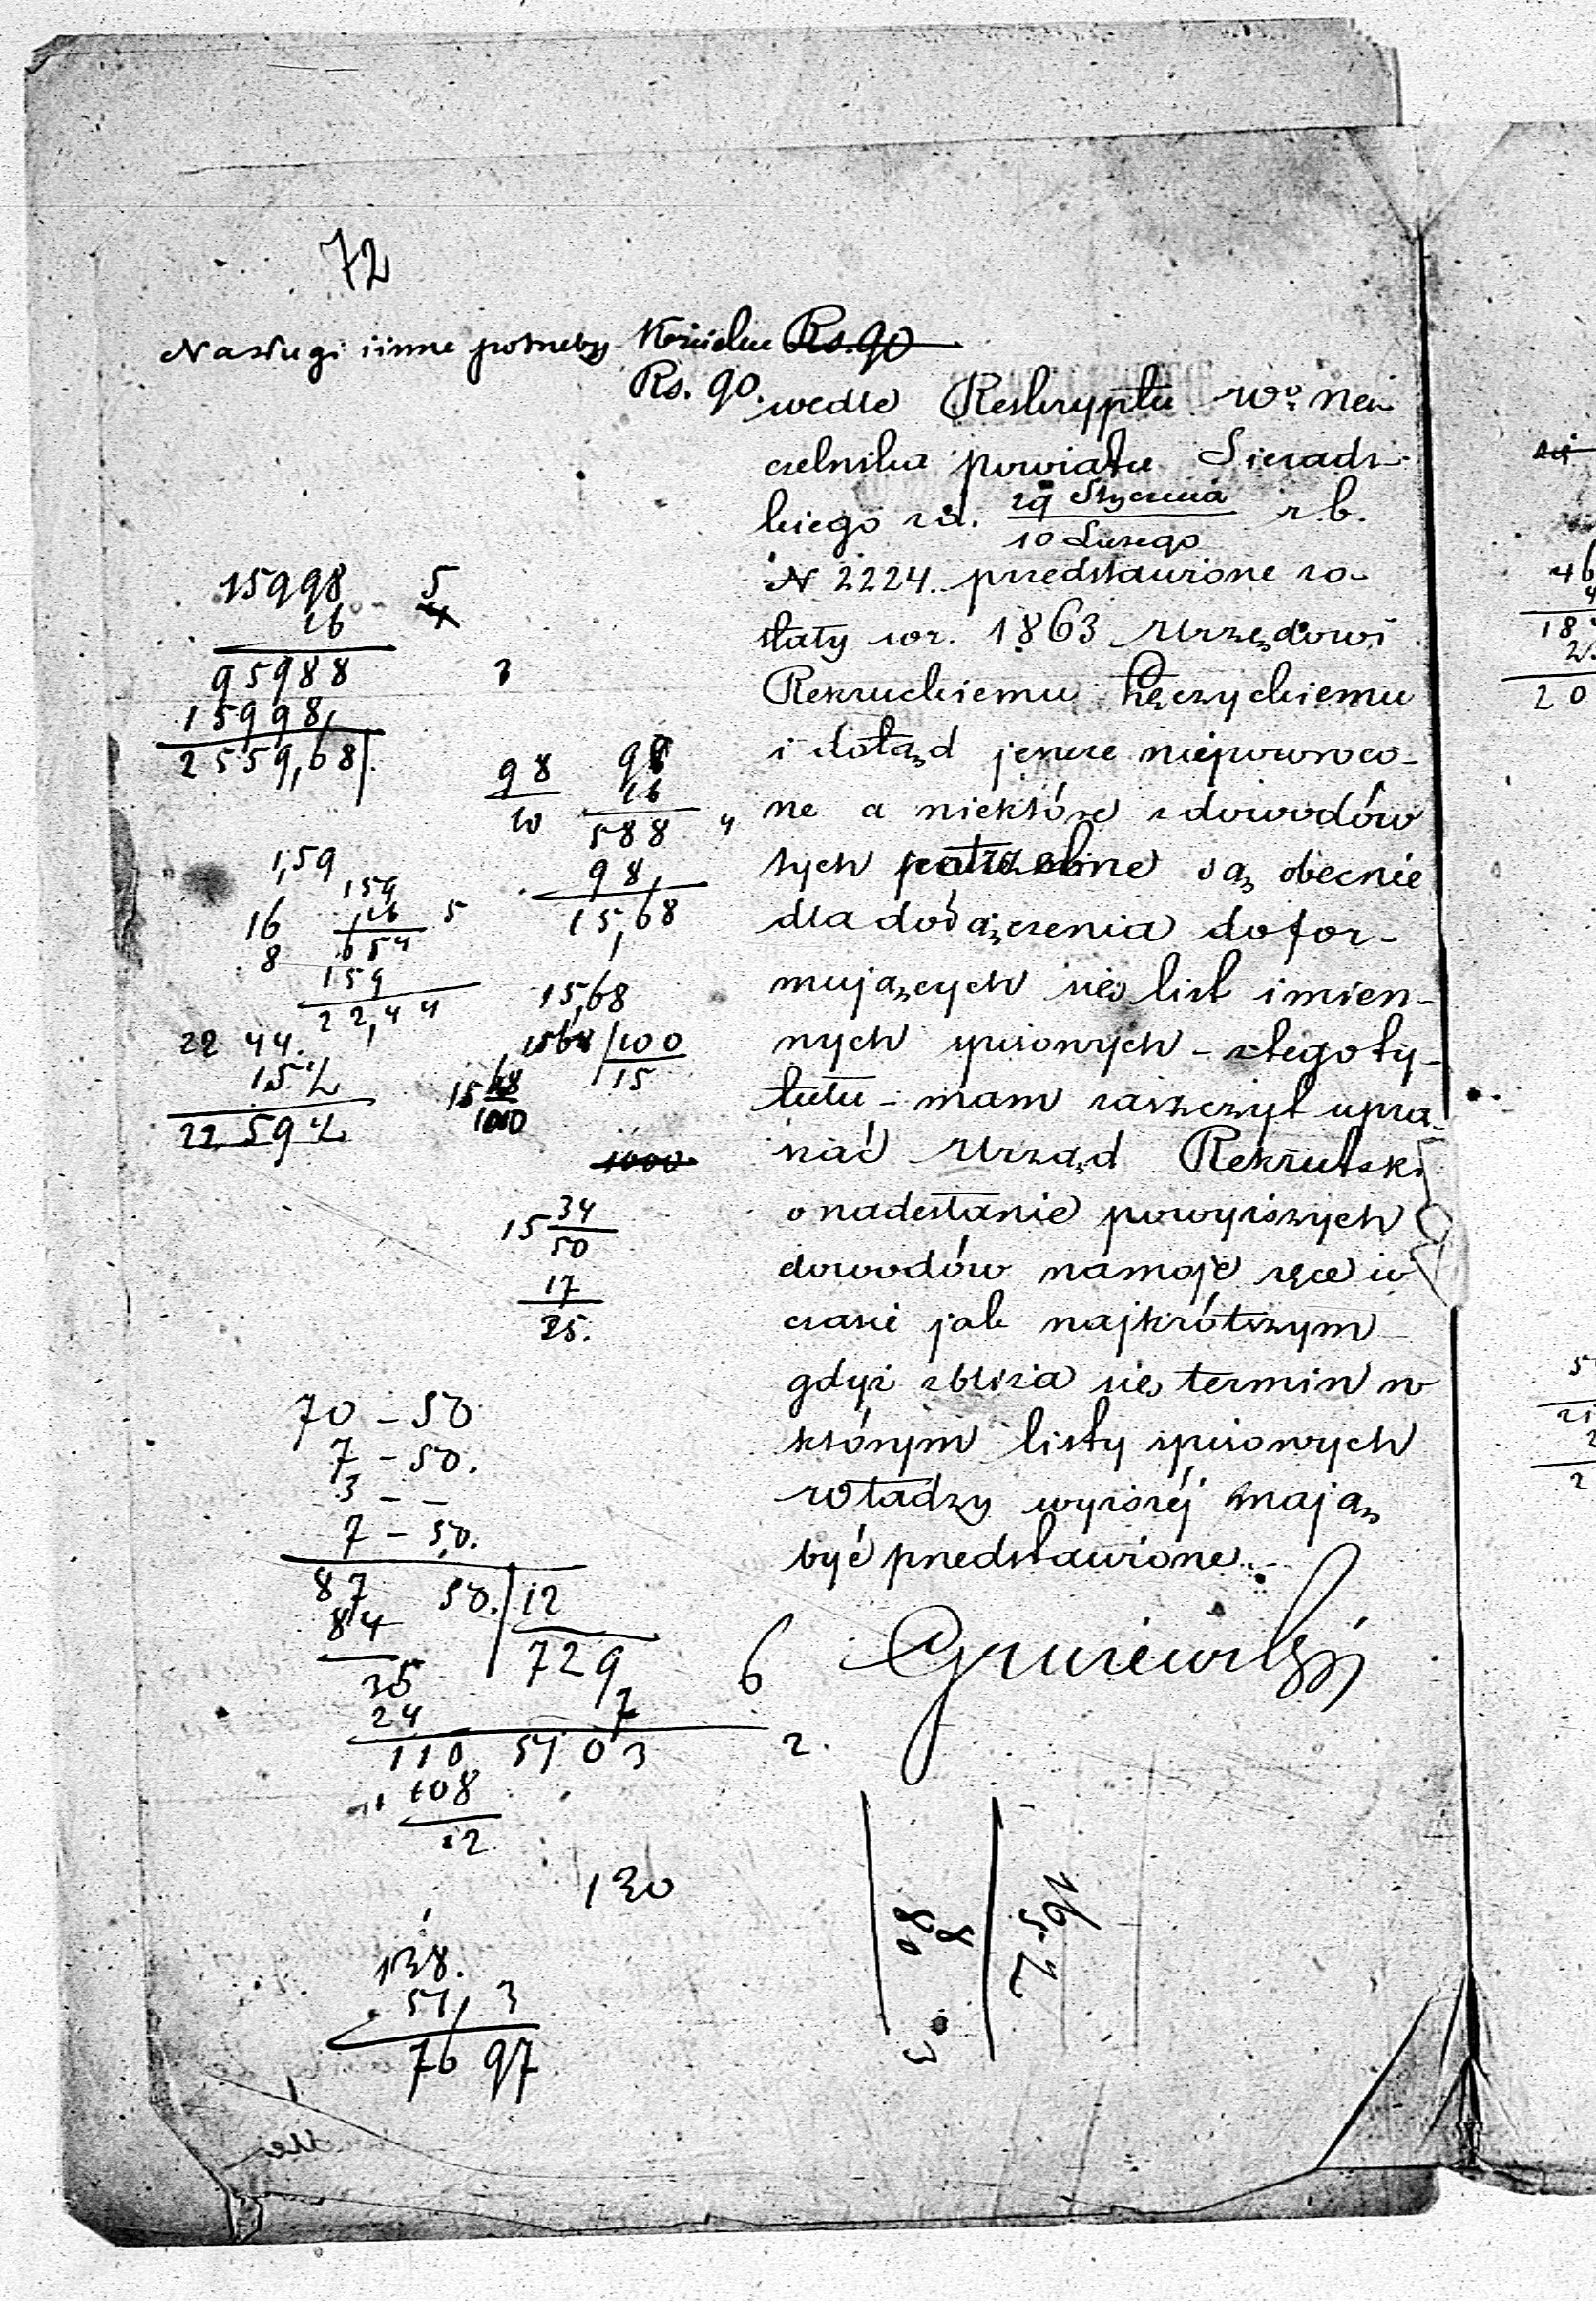 72
Na sługi i inne potrzeby Kościelne Rs. 90
Rs. 90.
wedle Reskryptu Wo Na-
czelnika powiatu Sieradz-
kiego z d. 29 Stycznia / 10 Lutego r.b.
N 2224. przedstawione zo-
stały w r. 1863 Urzędowi
Rekruckiemu Łęczyckiemu
i dotąd jeszcze niepowróco-
ne a niektóre z dowodów
tych potrzebne są obecnie
dla dołączenia do for-
mujących się list imien-
nych spisowych – z tego ty-
tułu – mam zaszczyt upra-
szać Urząd Rekrutski
o nadesłanie powyższych
dowodów na moje ręce w
czasie jak najkrótszym
gdyż zbliża się termin w
którym listy spisowych
Władzy wyższéj mają
być przedstawione.
15998 5
16 4
95988 3
15998
2559,68
98 98
10 16
588 4
98
15,68
1,59
159
16 16 5
8 654
159
22,44
15,68
22 44.
1568 100
15
15 68
100
22 59
1000
15 34
50
17
25.
70 – 50
7 – 50.
3 – –
7 – 50.
87 50. 12
84
729 6
35
24 7
110 5103 2.
108
2
130
138.
51, 3
76 97
16
5 2
8
80
3
46
18
20
5
21
2